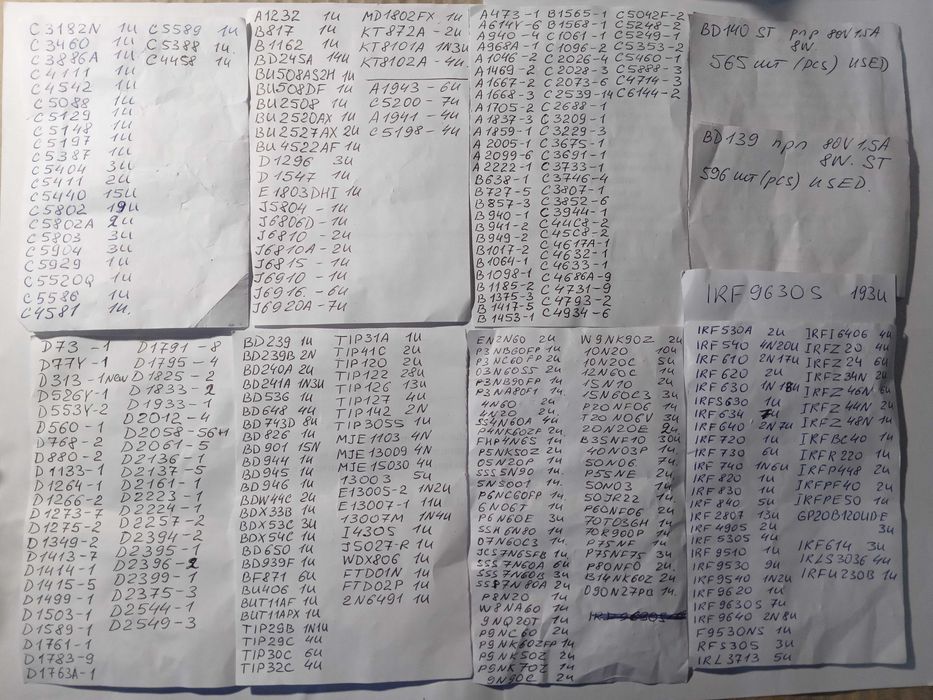 C3182N 1u
C3460 1u
C3886A 1u
C4111 1u
C4542 1u
C5088 1u
C5129 1u
C5148 1u
C5197 1u
C5387 1u
C5404 3u
C5411 2u
C5440 15u
C5802 19u
C5802A 2u
C5803 3u
C5904 3u
C5929 1u
C5520Q 1u
C5586 1u
C4581 1u.
C5589 1u
C5388 1u.
C4458 1u.
A1232 1u
B817 1u
B1162 1u
BD245A 14u
BU508AS2H 1u
BU508DF 1u
BU2508 1u
BU2520AX 1u
BU2527AX 2u
BU4522AF 1u
D1296 3u
D1547 1u
E1803DHI 1u
J5804 - 1u
J6806D - 1u
J6810 - 2u
J6810A - 2u
J6815 - 1u
J6910 - 1u
J6916. - 6u
J6920A - 7u
MD1802FX 1u
KT872A - 2u
KT8101A 1N3u
KT8102A - 4u.
A1943 - 6u
C5200 - 7u
A1941 - 4u
C5198 - 4u
A473 - 1
A614Y - 6
A940 - 4
A968A - 1
A1046 - 2
A1469 - 2
A1667 - 2
A1668 - 3
A1705 - 2
A1837 - 3
A1859 - 1
A2005 - 1
A2099 - 6
A2222 - 1
B638 - 1
B727 - 5
B857 - 3
B940 - 1
B941 - 2
B949 - 2
B1017 - 2
B1064 - 1
B1098 - 1
B1185 - 2
B1375 - 3
B1417 - 5
B1453 - 1
B1565 - 1
B1568 - 1
C1061 - 1
C1096 - 2
C2026 - 4
C2028 - 3
C2073 - 6
C2539 - 14
C2688 - 1
C3209 - 1
C3229 - 3
C3675 - 1
C3691 - 1
C3733 - 1
C3746 - 4
C3807 - 1
C3852 - 6
C3944 - 1
C44C8 - 2
C45C8 - 2
C4617A - 1
C4632 - 1
C4633 - 1
C4686A - 9
C4731 - 9
C4793 - 2
C4934 - 6
C5042F - 2
C5248 - 2
C5249 - 1
C5353 - 2
C5460 - 1
C5888 - 3
C4714 - 3
C6144 - 2
BD140 ST pnp 80V 1.5A
8W.
565 шт/(pcs) USED
BD139 npn 80V 1.5A
8W. ST
596 шт/(pcs) USED.
D73 - 1
D77Y - 1
D313 - 1new
D526Y - 1
D553Y - 2
D560 - 1
D768 - 2
D880 - 2
D1133 - 1
D1264 - 1
D1266 - 2
D1273 - 7
D1275 - 2
D1349 - 2
D1413 - 7
D1414 - 1
D1415 - 5
D1499 - 1
D1503 - 1
D1589 - 1
D1761 - 1
D1783 - 9
D1763A - 1
D1791 - 8
D1795 - 4
D1825 - 2
D1833 - 2
D1933 - 1
D2012 - 4
D2058 - 56H
D2061 - 5
D2136 - 7
D2137 - 5
D2161 - 1
D2223 - 1
D2224 - 1
D2257 - 2
D2394 - 2
D2395 - 1
D2396 - 2
D2399 - 1
D2375 - 3
D2544 - 1
D2549 - 3
BD239 1u
BD239B 2N
BD240A 2u
BD241A 1N3u
BD536 1u
BD648 4u
BD743D 8u
BD826 1u
BD901 15N
BD944 1u
BD945 1u
BD946 1u
BDW44C 2u
BDX33B 1u
BDX53C 3u
BDX54C 1u
BD650 1u
BD939F 1u
BF871 6u
BU406 1u
BUT11AF 1u
BUT11APX 1u
TIP29B 1N1u
TIP29C 4u
TIP30C 6u
TIP32C 4u
TIP31A 1u
TIP41C 2u
TIP120 2u
TIP122 28u
TIP126 13u
TIP127 4u
TIP142 2N
TIP3055 1u
MJE1103 4N
MJE13009 4N
MJE15030 4u
13003 5u
E13005-2 1N2u
E13007-1 11u
13007M 1N4u
I4305 1u
J5027-R 1u
WDX806 1u
FTD01N 1u
FTD02P 1u
2N6491 1u
EN2N60 2u
P3NB60FP 1u
P3NC60FP 2u
03N60S5 2u
P3NB90FP 1u
P3NA80FI 1u.
4N60 2u
4N20 2u.
SSS4N60A 1u
P4NK60ZF 2u
FHP4N65 1u
P5NK50Z 2u
05N20P 1u
SSS5N90 1u
5NS001 1u
P6NC60FP 1u
6N06T 1u
P6N60E 3u
SSH6N80 1u
07N60C3 2u
JCS7N65FB 1u
SSS7N60A 6u
SSS7N60B 3u
SSP7N80A 2u
P8N20 1u
W8NA60 1u
9NQ20T 1u
P9NC60 2u
P9NK60ZFP 1u
P9NK50Z 2u
P9NK70Z 1u
9N90C 2u
W9NK90Z 2u
10N20 10u
10N20C 5u
12N60C 1u
15N10 2u
15N60C3 3u
P20NF06 1u
T20N06V 3u
20N20E 2u
B35NF10 30u
40N03P 1u
50N06 7u.
P55NE 2u
50N03 1u
50JR22 1u
P60NF06 2u
70T03GH 1u
70R900P 1u
P75NF 1u
P75NF75 3u
P80NF0 2u
B14NK60Z 2u
090N27PB 1u.
IRF9630S 193u
IRF530A 2u
IRF540 4N20u
IRF610 2N17u
IRF620 2u
IRF630 1N18u
IRFS630 1u
IRF634 7u
IRF640 2N7u
IRF720 1u
IRF730 6u
IRF740 1N6u
IRF820 1u
IRF830 1u
IRF840 5u
IRF2807 13u
IRF4905 2u
IRF5305 4u
IRF9510 1u
IRF9530 9u
IRF9540 1N2u
IRF9620 1u
IRF9630S 7u
IRF9640 2N8u
F9530NS 1u
RFS305 3u
IRL3713 5u
IRFI6406 4u
IRFZ20 4u
IRFZ24 6u
IRFZ34N 2u
IRFZ46N 6u
IRFZ44N 2u
IRFZ48N 1u
IRFBC40 1u
IRFR220 1u
IRFP448 2u
IRFPF40 2u
IRFPE50 1u
GP20B120UD-E
3u
IRF614 3u
IRLS3036 4u
IRFU230B 1u